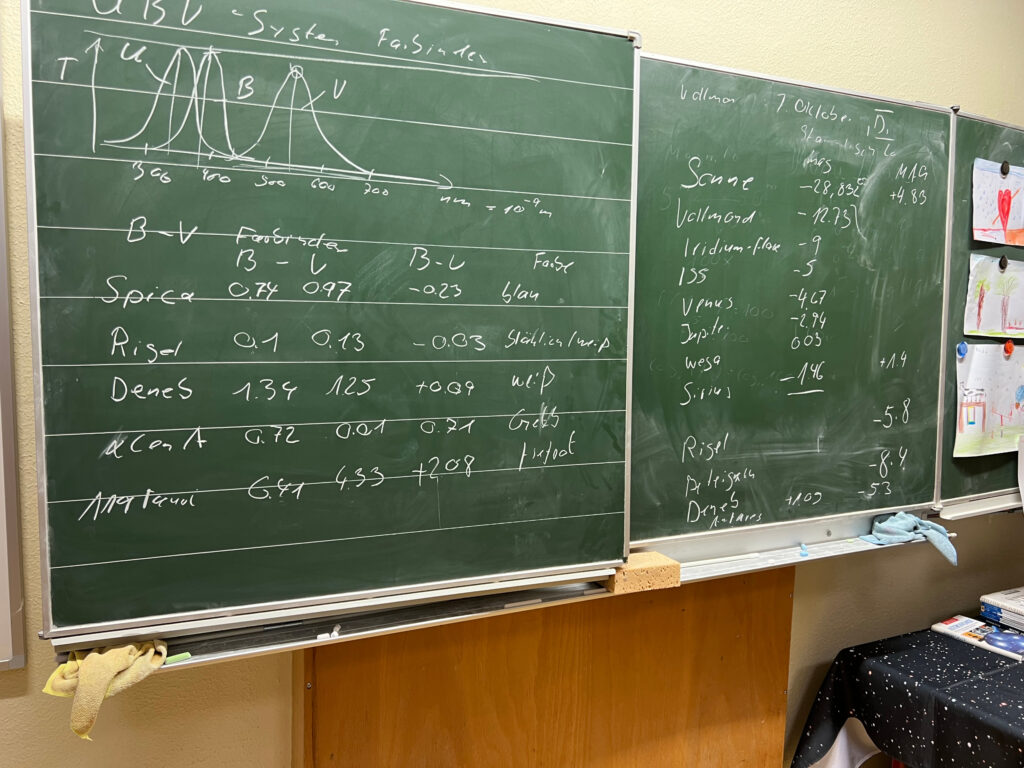 UBV-System Farbindex
T U B V
300 400 500 600 700
nm = 10⁻⁹ m
B-V Farbindex
B - V B-V Farbe
Spica 0.74 0.97 -0.23 blau
Rigel 0.1 0.13 -0.03
Deneb 1.34 1.25 +0.09 weiß
α Cen A 0.72 0.01 0.71 Gelb
119 Tauri 6.41 4.33 +2.08 tiefrot
Vollmon 7. Oktober Di
mag MAG
Sonne +4.83
Vollmond -12.73
Iridium-flare -9
ISS -5
Venus -4.67
Jupiter -2.94
Wega 0.03
Sirius -1.46 +1.4
Rigel -5.8
Deneb -8.4
Antares +1.09 -5.3